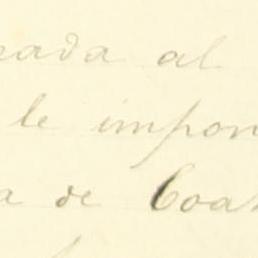 rada al
le impon
a de Coat